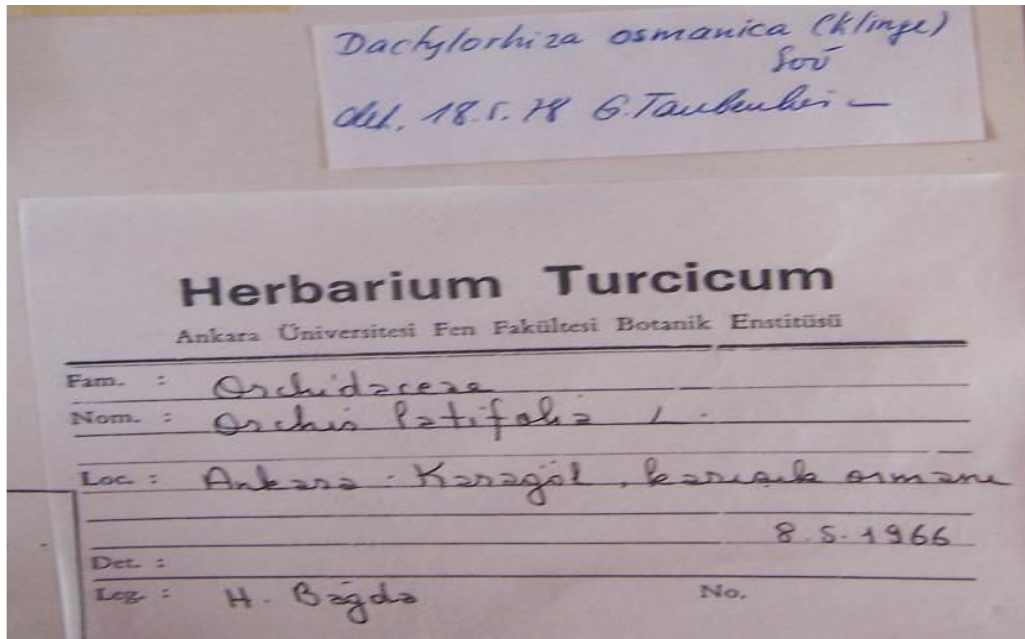 Dactylorhiza osmanica (Klinge)
Soó
det. 18.5.78 G. Taubenhei
Herbarium Turcicum
Ankara Üniversitesi Fen Fakültesi Botanik Enstitüsü
Fam. : Orchidaceae
Nom. : Orchis latifolia L.
Loc. : Ankara : Karagöl, karışık ormanı
8.5.1966
Det. :
Leg. : H. Bağda No.